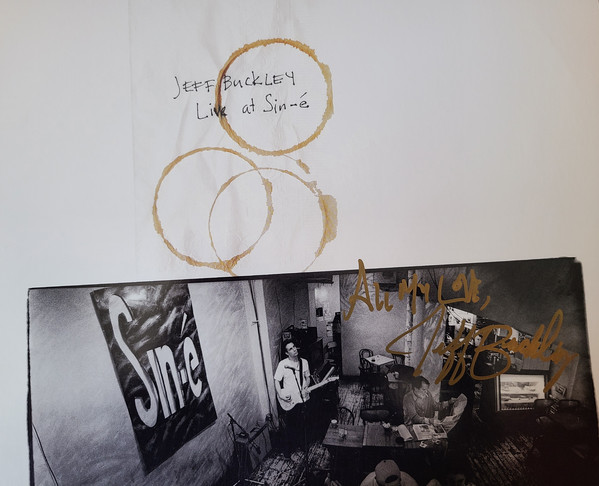 JEFF BUCKLEY
Live at Sin-é
All My Love,
Jeff Buckley
Sin-é